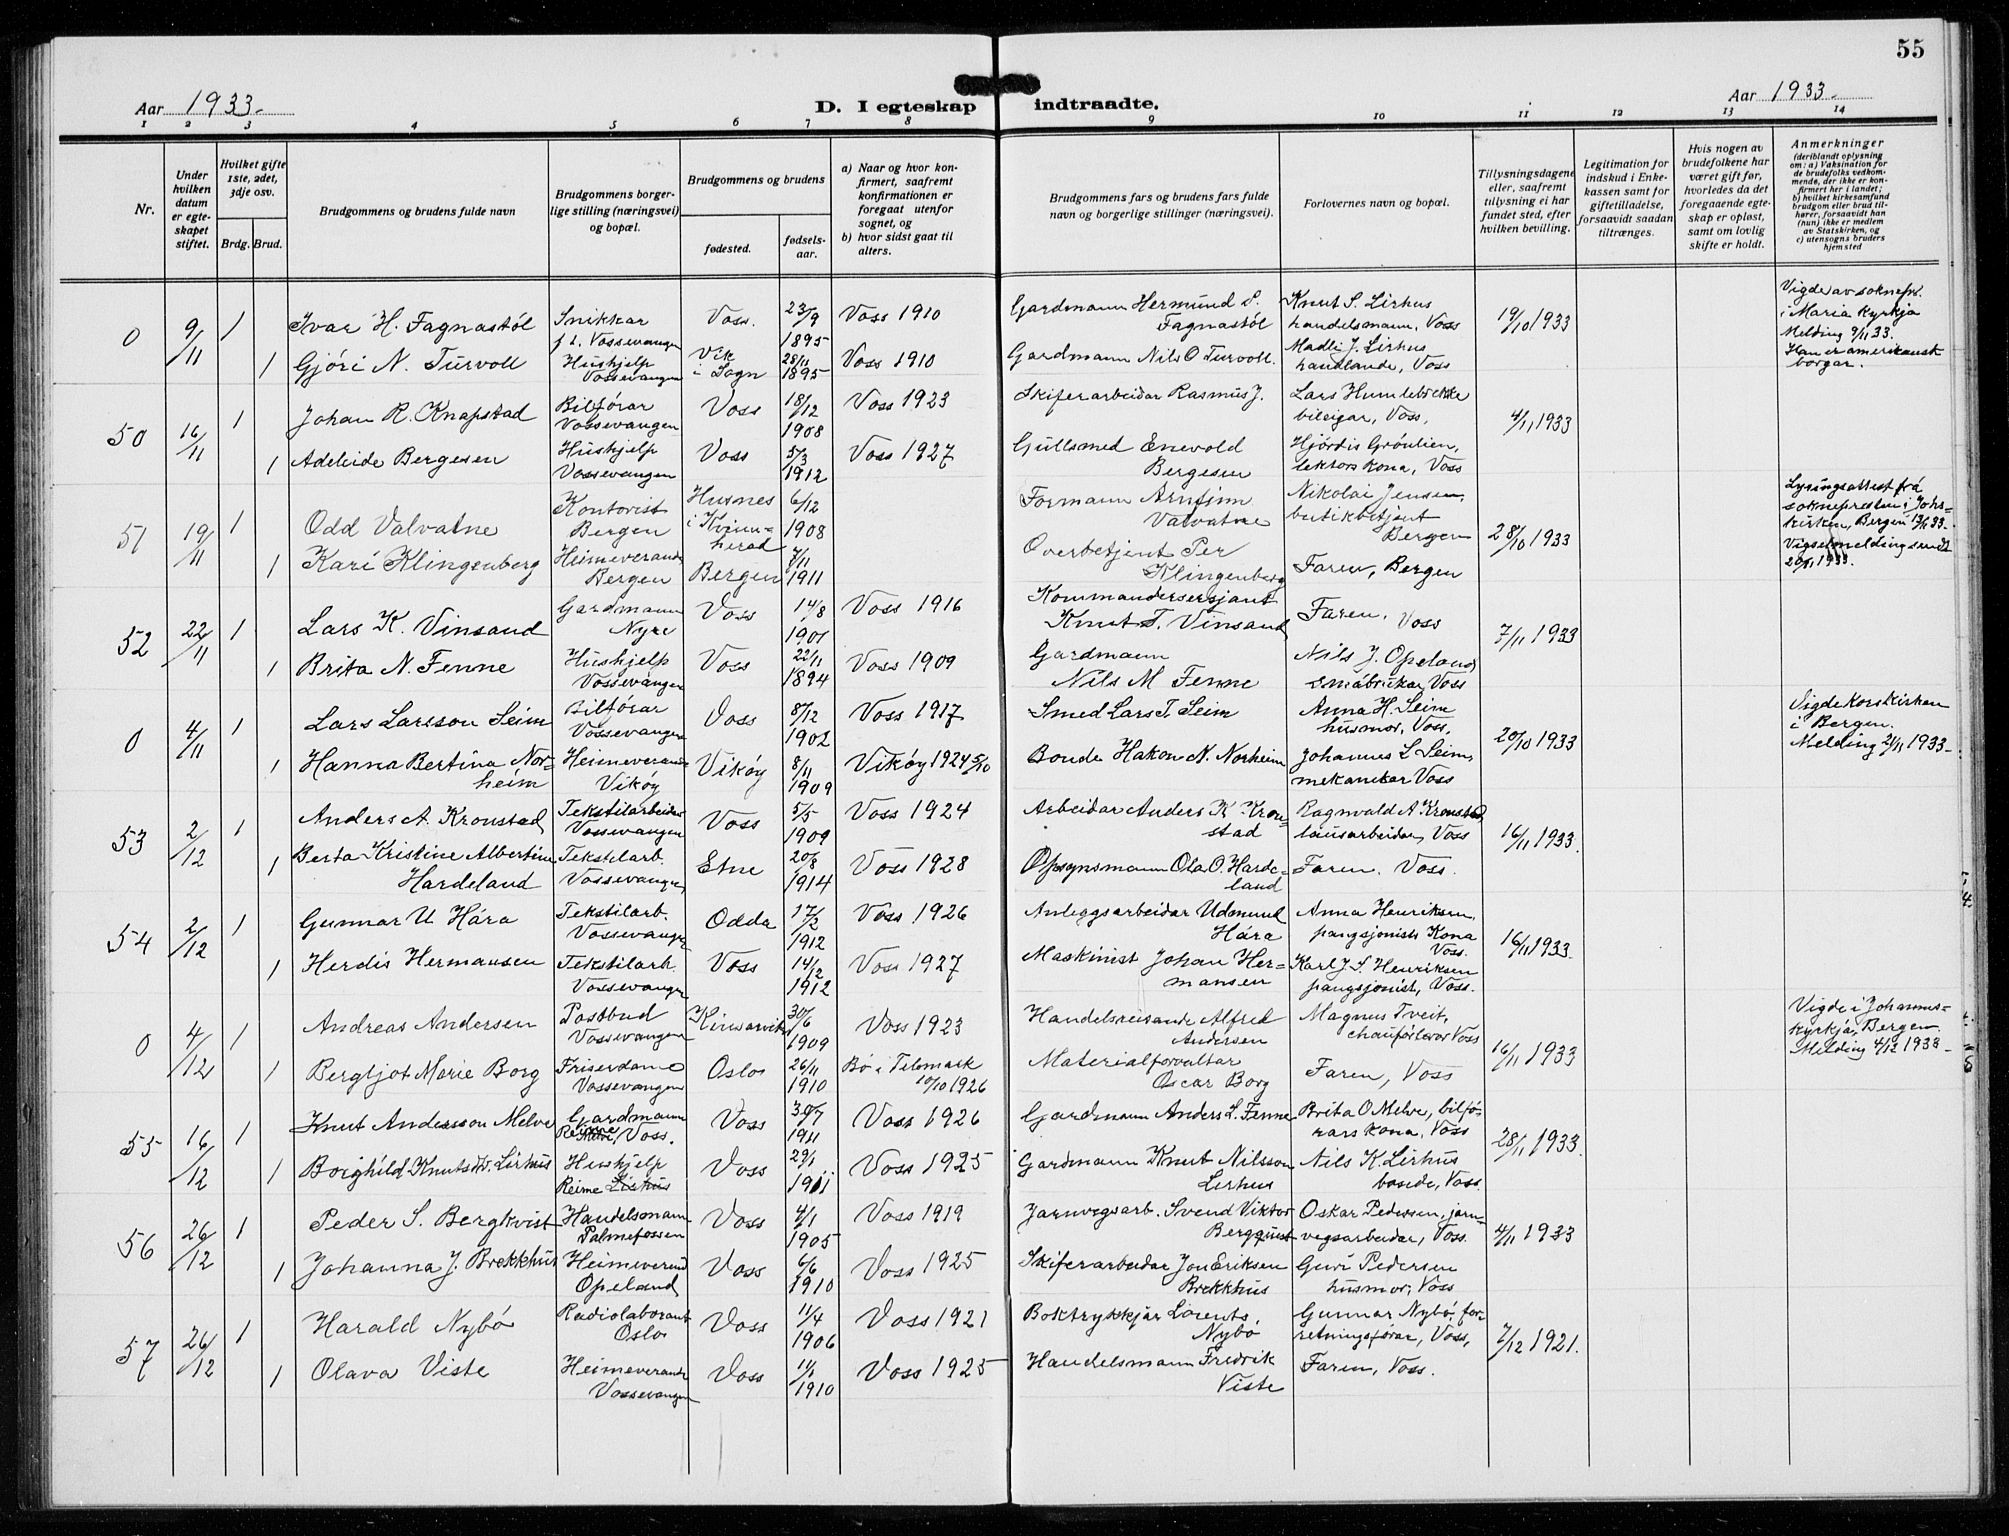 55
Aar 1933.
D. I egteskap indtraadte.
Aar 1933.
1 2 3 4 5 6 7 8 9 10 11 12 13 14
Nr.
Under hvilken datum er egteskapet stiftet.
Hvilket gifte 1ste, 2det, 3dje osv.
Brdg. Brud.
Brudgommens og brudens fulde navn
Brudgommens borgerlige stilling (næringsvei) og bopæl.
Brudgommens og brudens
fødested.
fødselsaar.
a) Naar og hvor konfirmert, saafremt konfirmationen er foregaat utenfor sognet, og
b) hvor sidst gaat til alters.
Brudgommens fars og brudens fars fulde navn og borgerlige stillinger (næringsvei).
Forlovernes navn og bopæl.
Tillysningsdagene eller, saafremt tillysning ei har fundet sted, efter hvilken bevilling.
Legitimation for indskud i Enkekassen samt for giftetilladelse, forsaavidt saadan tiltrænges.
Hvis nogen av brudefolkene har været gift før, hvorledes da det foregaaende egteskap er opløst, samt om lovlig skifte er holdt.
Anmerkninger
(deriblandt oplysning om: a) Vaksination for de brudefolks vedkommende, der ikke er konfirmert her i landet; b) hvilket kirkesamfund brudgom eller brud tilhører, forsaavidt han (hun) ikke er medlem av Statskirken, og c) utensogns bruders hjemsted
0 9/11 1 Ivar H. Fagnastöl Snikkar f.t. Vossevangen Voss. 23/9 1895 Voss 1910 Gardmann Hermund S. Fagnastöl Knut S. Lirhus handelsmann, Voss 19/10 1933 Vigde av soknepr. i Maria Kyrkja Melding 9/11 33. Han er amerikansk borgar.
1 Gjöri N. Turvoll Hushjelp Vossevangen Vik i Sogn 28/11 1895 Voss 1910 Gardmann Nils O Turvoll. Madli J. Lirhus handlande, Voss
50 16/11 1 Johan R. Knapstad Bilförar Vossevangen Voss 18/12 1908 Voss 1923 Skiferarbeidar Rasmus J. Lars Humlebrekke bileigar, Voss, 4/11 1933
1 Adeleide Bergesen Hushjelp Vossevangen Voss 5/3 1912 Voss 1927 Gullsmed Enevold Bergesen Hjördis Grönlien, lektors kona, Voss
51 19/11 1 Odd Valvatne Kontorist Bergen Husnes i Kvinnherad 6/12 1908 Formann Arnfinn Valvatne Nikolai Jensen, butikbetjent Bergen 28/10 1933 Lysingsattest frå soknepresten i Johskirken, Bergen 13/11 33. Vigselmelding sendt 20/11 1933.
1 Kari Klingenberg Heimeverande Bergen Bergen 7/11 1911 Overbetjent Per Klingenberg Faren, Bergen
52 22/11 1 Lars K. Vinsand Gardmann Nyre Voss 14/8 1901 Voss 1916 Kommandersersjant Knut T. Vinsand Faren, Voss 7/11 1933
1 Brita N. Fenne Hushjelp Vossevangen Voss 22/11 1894 Voss 1909 Gardmann Nils M Fenne Nils J. Opeland småbrukar, Voss
0 4/11 1 Lars Larsson Seim Bilförar Vossevangen Voss 8/12 1902 Voss 1917 Smed Lars T. Seim Anna H. Seim husmor, Voss, 20/10 1933 Vigde Korskirken i Bergen. Melding 21/11 1933
1 Hanna Bertina Norheim Heimeverande Viköy Viköy 8/11 1909 Viköy 1924 5/10 Bonde Hakon N. Norheim Johannes L Seim, mekanikar Voss
53 2/12 1 Anders A. Kronstad Tekstilarbeider Vossevangen Voss 5/5 1909 Voss 1924 Arbeidar Anders K Kronstad Ragnvald A Kronstad lausarbeidar, Voss 16/11 1933.
1 Berta Kristine Albertine Hardeland Tekstilarb. Vossevangen Etne 20/8 1914 Voss 1928 Opsynsmann Ola O. Hardeland Faren. Voss.
54 2/12 1 Gunnar U Håra Tekstilarb. Vossevangen Odda 17/2 1912 Voss 1926 Anleggsarbeidar Udmund Håra Anna Henriksen, pangsjonists Kona Voss. 16/11 1933.
1 Herdis Hermansen Tekstilarb. Vossevangen Voss 14/12 1912 Voss 1927 Maskinist Johan Hermansen Karl J. S. Henriksen pangsjonist, Voss.
0 4/12 1 Andreas Andersen Postbud Vossevangen Kinsarvik 30/6 1909 Voss 1923 Handelsreisande Alfred Andersen Magnus Tveit, chaufförlærar Voss 16/11 1933 Vigde i Johanneskyrkja, Bergen. Melding 4/12 1933
1 Bergljot Marie Borg Friserdame Vossevangen Oslo 26/11 1910 Bö i Telemark 10/10 1926 Materialforvaltar Oscar Borg Faren, Voss
55 16/12 1 Knut Andersson Melve Gardmann Reime, Voss. Voss 30/7 1911 Voss 1926 Gardmann Anders L. Fenne Brita O Melve, bilförars kona, Voss 28/11 1933.
1 Borghild Knutsdt. Lirhus Hushjelp Reime Lirhus Voss 29/1 1911 Voss 1925 Gardmann Knut Nilsson Lirhus Nils K. Lirhus bonde, Voss.
56 26/12 1 Peder S. Bergkvist Handelsmann Palmefossen Voss 4/1 1905 Voss 1919 Jarnvegsarb. Svend Viktor Bergquist Oskar Pedersen, jarnvegsarbeidar, Voss. 4/11 1933
1 Johanna J. Brekkhus Heimeverand Opeland Voss 6/6 1910 Voss 1925 Skiferarbeidar Jon Eriksen Brekkhus Guri Pedersen husmor, Voss
57 26/12 1 Harald Nybö Radiolaborant Oslo Voss 11/4 1906 Voss 1921 Boktrykkjar Lorents. Nybö Gunnar Nybö, forretningsförar, Voss, 7/12 1921.
1 Olava Viste Heimeverande Vossevangen Voss 11/1 1910 Voss 1925 Handelsmann Fredrik Viste Faren, Voss.